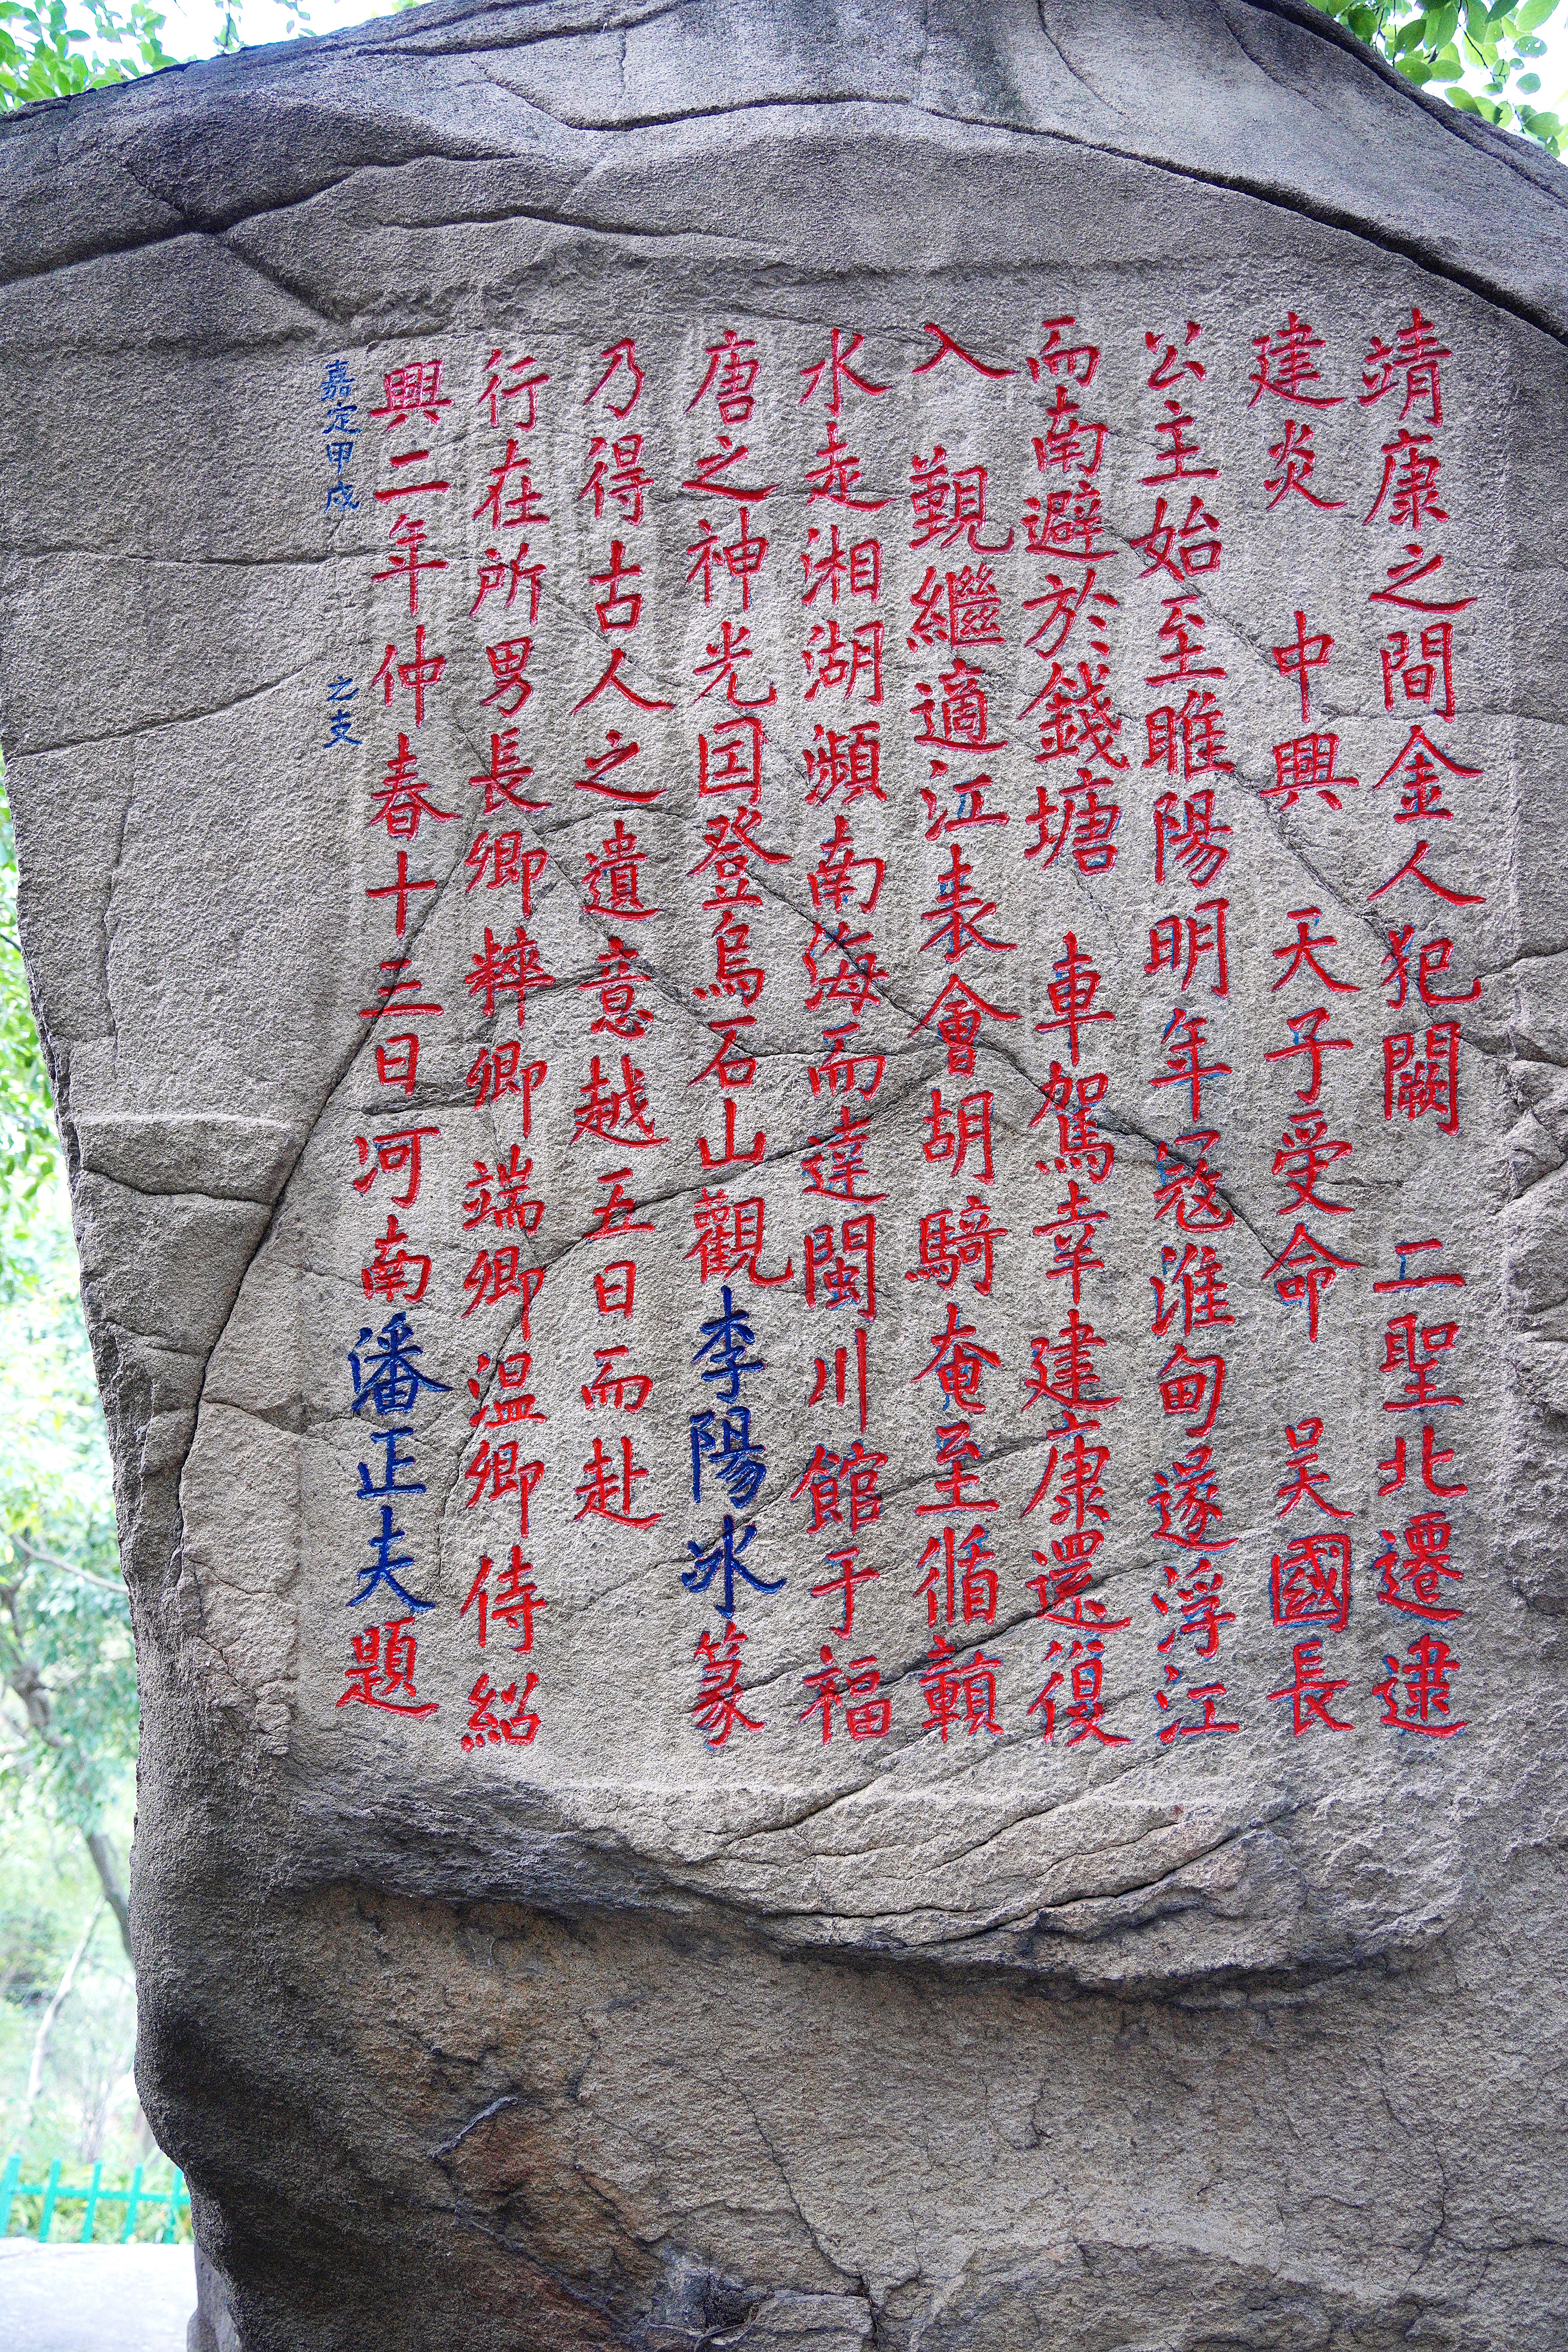 靖康之間金人犯闕 二聖北遷逮
建炎 中興 天子受命 吴國長
公主始至睢陽明年冦淮甸遂浮江
而南避於錢塘 車駕幸建康還復
入 覲繼適江表會胡騎奄至循贑
水走湘湖瀕南海而達閩川館于福
唐之神光因登烏石山觀李陽冰篆
乃得古人之遺意越五日而赴
行在所男長卿粹卿端卿温卿侍紹
興二年仲春十三日河南潘正夫題
嘉定甲戌 之支